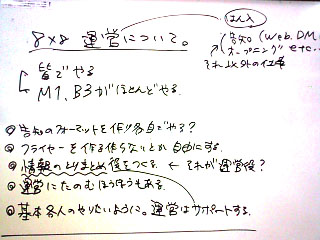 8×8 運営について。
はんい
告知 (Web. DM
オープニング etc...
それ以外の仕事
皆でやる
M1、B3がほとんどやる。
◎告知のフォーマットを作り各自でやる?
◎フライヤーを作る作らないとか自由にする。
◎情報のとりまとめ役をつくる ← それが運営役?
◎運営にたのむほうほうもある。
◎基本各人のやりたいように。運営はサポートする。